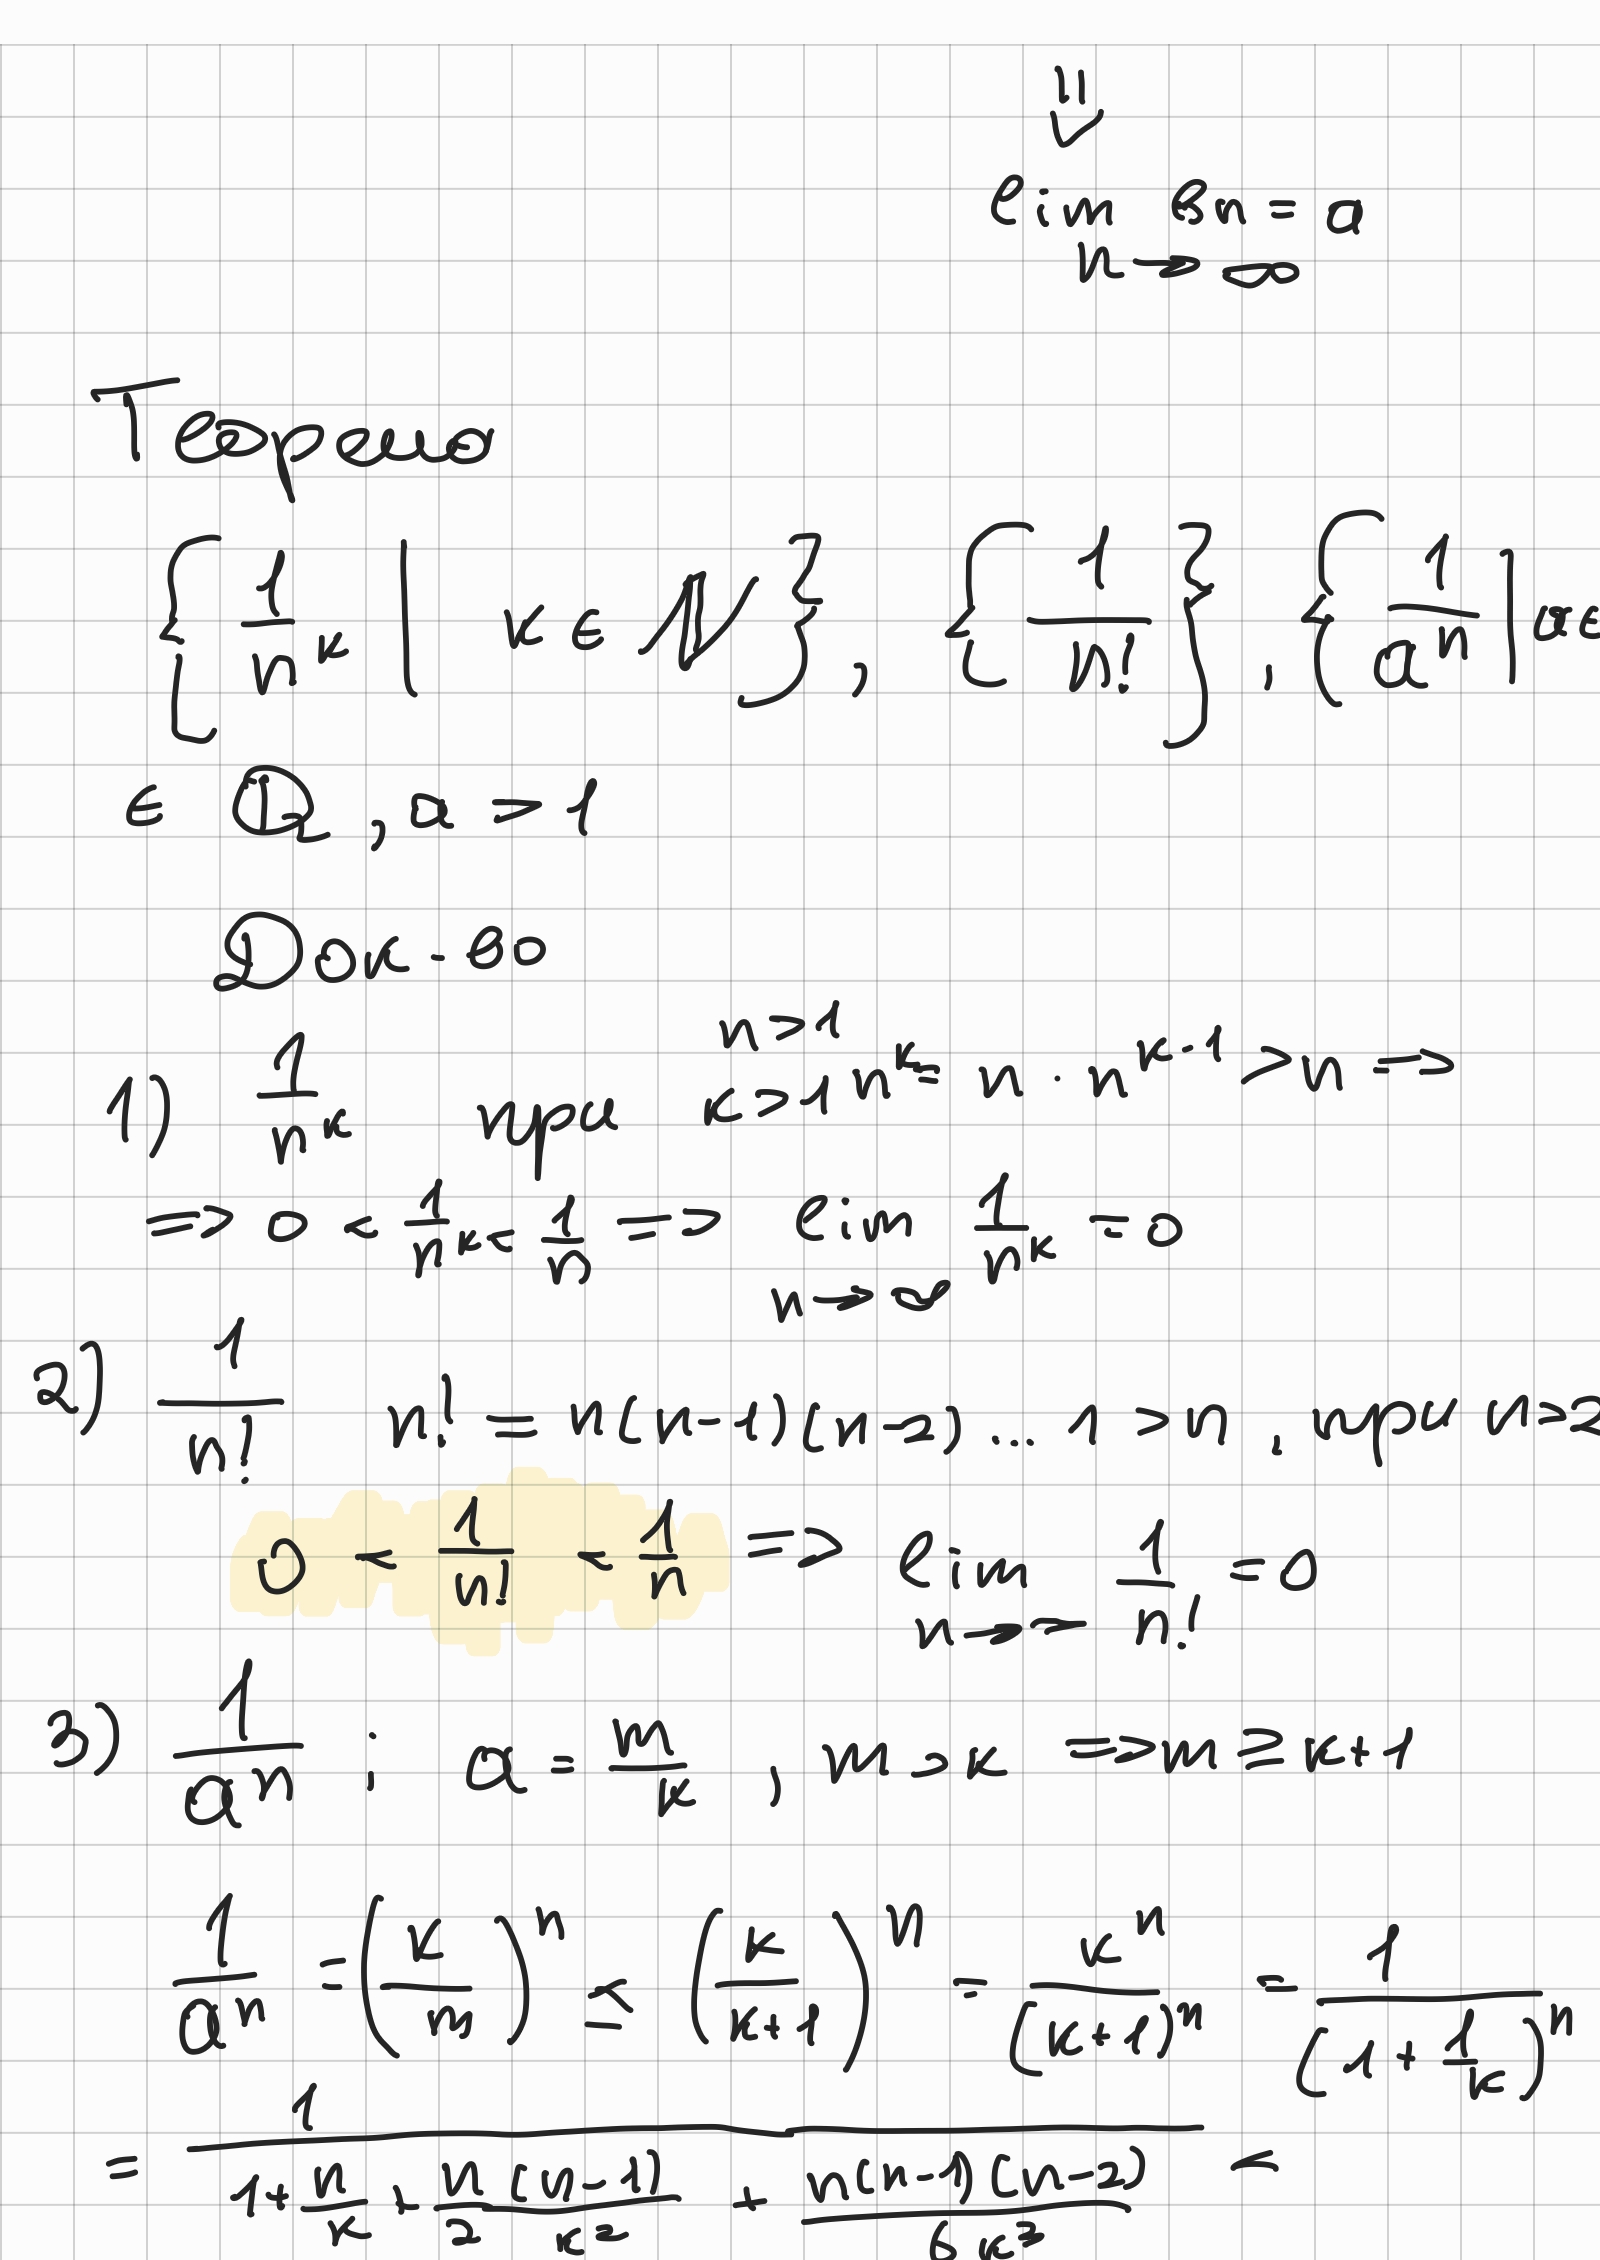 ⇓
lim bn = a
n → ∞
Теорема
{ 1/n^k | k ∈ ℕ }, { 1/n! }, { 1/a^n | a ∈
∈ ℚ, a > 1
Док-во
1) 1/n^k при n>1 k>1 n^k = n · n^(k-1) > n ⇒
⇒ 0 < 1/n^k < 1/n ⇒ lim n→∞ 1/n^k = 0
2) 1/n! n! = n(n-1)(n-2)... 1 > n, при n>2
0 < 1/n! < 1/n ⇒ lim n→∞ 1/n! = 0
3) 1/a^n ; a = m/k , m > k ⇒ m ≥ k+1
1/a^n = (k/m)^n ≤ (k/(k+1))^n = k^n/(k+1)^n = 1/(1 + 1/k)^n
= 1/(1 + n/k + n(n-1)/2k² + n(n-1)(n-2)/6k³ <